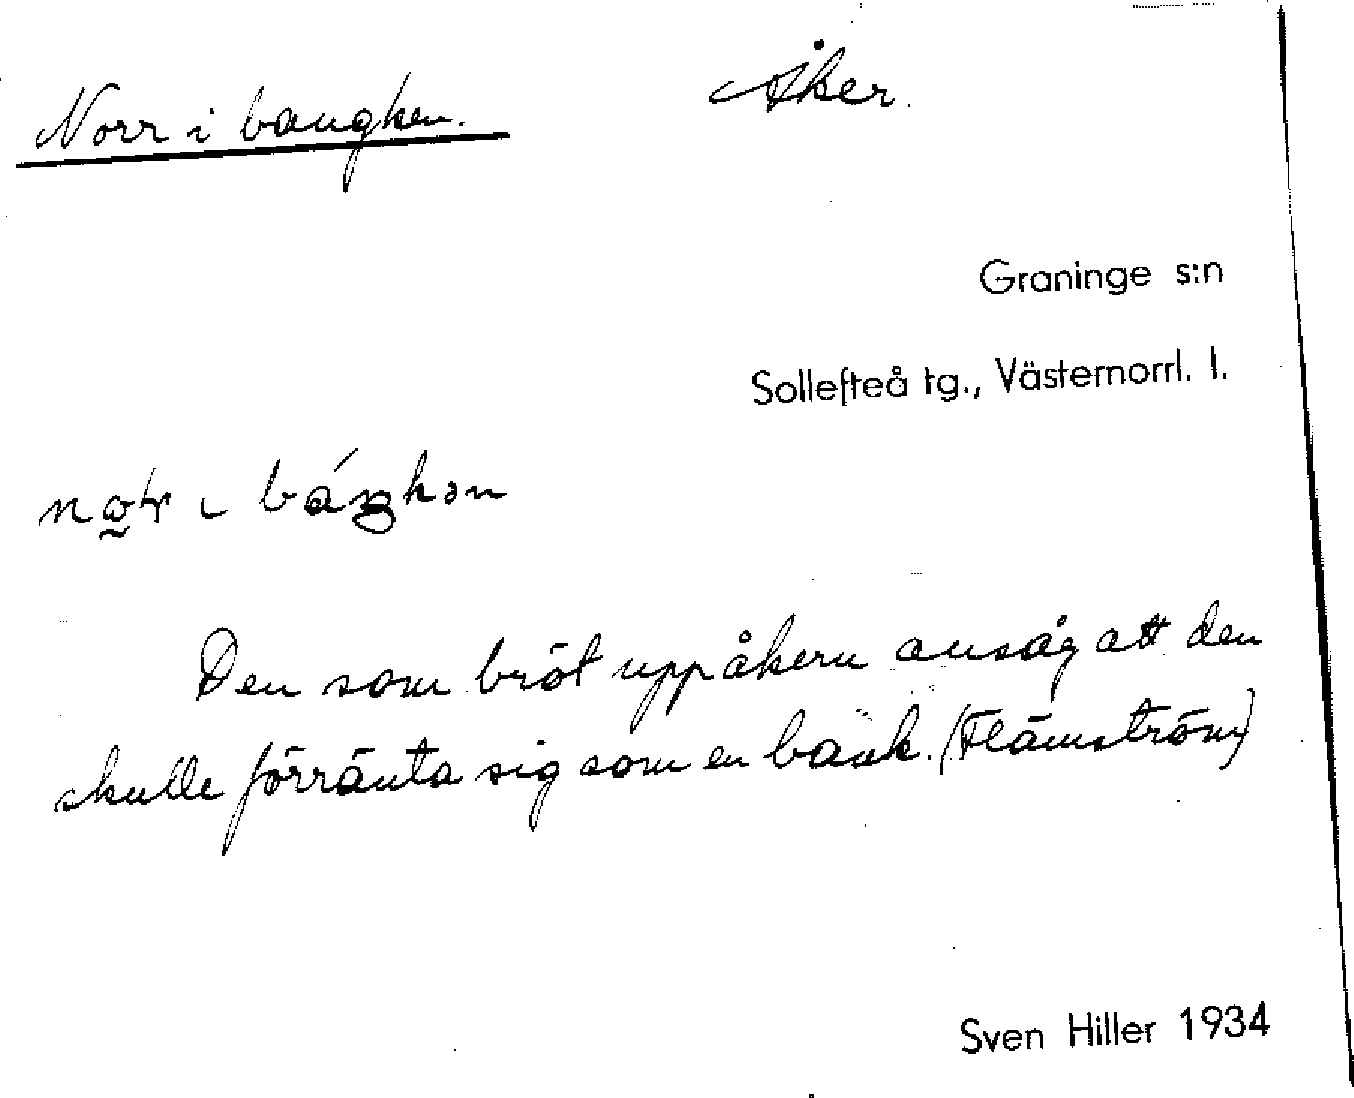 Norr i bangken. Åker.
Graninge s:n
Sollefteå tg., Västernorrl. l.
i
Den som bröt upp åkern ansåg att den
skulle förränta sig som en bank. (Flämström)
Sven Hiller 1934